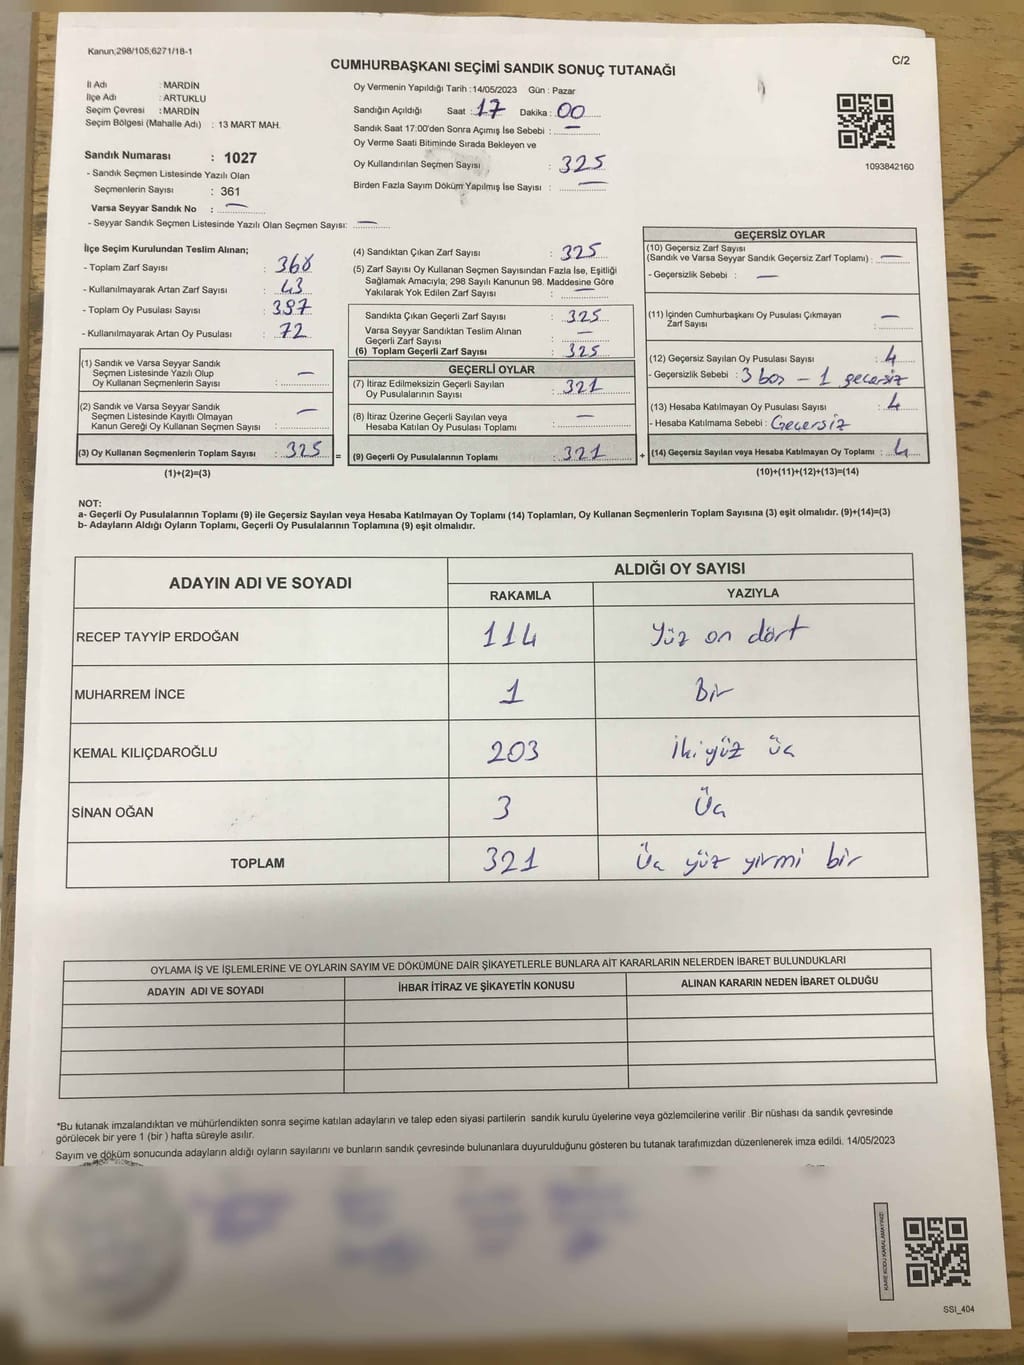 Kanun;298/105;6271/18-1
C/2
CUMHURBAŞKANI SEÇİMİ SANDIK SONUÇ TUTANAĞI
İl Adı : MARDİN
İlçe Adı : ARTUKLU
Seçim Çevresi : MARDİN
Seçim Bölgesi (Mahalle Adı) : 13 MART MAH.
Sandık Numarası : 1027
- Sandık Seçmen Listesinde Yazılı Olan
Seçmenlerin Sayısı : 361
Varsa Seyyar Sandık No : —
- Seyyar Sandık Seçmen Listesinde Yazılı Olan Seçmen Sayısı: —
Oy Vermenin Yapıldığı Tarih : 14/05/2023 Gün : Pazar
Sandığın Açıldığı Saat : 17 Dakika : 00
Sandık Saat 17:00'den Sonra Açımış İse Sebebi : —
Oy Verme Saati Bitiminde Sırada Bekleyen ve
Oy Kullandırılan Seçmen Sayısı : 325
Birden Fazla Sayım Döküm Yapılmış İse Sayısı : —
1093842160
İlçe Seçim Kurulundan Teslim Alınan;
- Toplam Zarf Sayısı : 368
- Kullanılmayarak Artan Zarf Sayısı : 43
- Toplam Oy Pusulası Sayısı : 397
- Kullanılmayarak Artan Oy Pusulası : 72
(1) Sandık ve Varsa Seyyar Sandık
Seçmen Listesinde Yazılı Olup
Oy Kullanan Seçmenlerin Sayısı : —
(2) Sandık ve Varsa Seyyar Sandık
Seçmen Listesinde Kayıtlı Olmayan
Kanun Gereği Oy Kullanan Seçmen Sayısı : —
(3) Oy Kullanan Seçmenlerin Toplam Sayısı : 325 =
(1)+(2)=(3)
(4) Sandıktan Çıkan Zarf Sayısı : 325
(5) Zarf Sayısı Oy Kullanan Seçmen Sayısından Fazla İse, Eşitliği
Sağlamak Amacıyla; 298 Sayılı Kanunun 98. Maddesine Göre
Yakılarak Yok Edilen Zarf Sayısı : —
Sandıkta Çıkan Geçerli Zarf Sayısı : 325
Varsa Seyyar Sandıktan Teslim Alınan
Geçerli Zarf Sayısı : —
(6) Toplam Geçerli Zarf Sayısı : 325
GEÇERLİ OYLAR
(7) İtiraz Edilmeksizin Geçerli Sayılan
Oy Pusulalarının Sayısı : 321
(8) İtiraz Üzerine Geçerli Sayılan veya
Hesaba Katılan Oy Pusulası Toplamı : —
(9) Geçerli Oy Pusulalarının Toplamı : 321 +
GEÇERSİZ OYLAR
(10) Geçersiz Zarf Sayısı
(Sandık ve Varsa Seyyar Sandık Geçersiz Zarf Toplamı) : —
- Geçersizlik Sebebi : —
(11) İçinden Cumhurbaşkanı Oy Pusulası Çıkmayan
Zarf Sayısı : —
(12) Geçersiz Sayılan Oy Pusulası Sayısı : 4
- Geçersizlik Sebebi : 3 boş — 1 geçersiz
(13) Hesaba Katılmayan Oy Pusulası Sayısı : 4
- Hesaba Katılmama Sebebi : Geçersiz
(14) Geçersiz Sayılan veya Hesaba Katılmayan Oy Toplamı : 4
(10)+(11)+(12)+(13)=(14)
NOT:
a- Geçerli Oy Pusulalarının Toplamı (9) ile Geçersiz Sayılan veya Hesaba Katılmayan Oy Toplamı (14) Toplamları, Oy Kullanan Seçmenlerin Toplam Sayısına (3) eşit olmalıdır. (9)+(14)=(3)
b- Adayların Aldığı Oyların Toplamı, Geçerli Oy Pusulalarının Toplamına (9) eşit olmalıdır.
ADAYIN ADI VE SOYADI
ALDIĞI OY SAYISI
RAKAMLA YAZIYLA
RECEP TAYYİP ERDOĞAN 114 Yüz on dört
MUHARREM İNCE 1 Bir
KEMAL KILIÇDAROĞLU 203 İkiyüz üç
SİNAN OĞAN 3 Üç
TOPLAM 321 Üç yüz yirmi bir
OYLAMA İŞ VE İŞLEMLERİNE VE OYLARIN SAYIM VE DÖKÜMÜNE DAİR ŞİKAYETLERLE BUNLARA AİT KARARLARIN NELERDEN İBARET BULUNDUKLARI
ADAYIN ADI VE SOYADI İHBAR İTİRAZ VE ŞİKAYETİN KONUSU ALINAN KARARIN NEDEN İBARET OLDUĞU
*Bu tutanak imzalandıktan ve mühürlendikten sonra seçime katılan adayların ve talep eden siyasi partilerin sandık kurulu üyelerine veya gözlemcilerine verilir .Bir nüshası da sandık çevresinde
görülecek bir yere 1 (bir ) hafta süreyle asılır.
Sayım ve döküm sonucunda adayların aldığı oyların sayılarını ve bunların sandık çevresinde bulunanlara duyurulduğunu gösteren bu tutanak tarafımızdan düzenlenerek imza edildi. 14/05/2023
KARE KODU KARALAMAYINIZ!
SSI_404